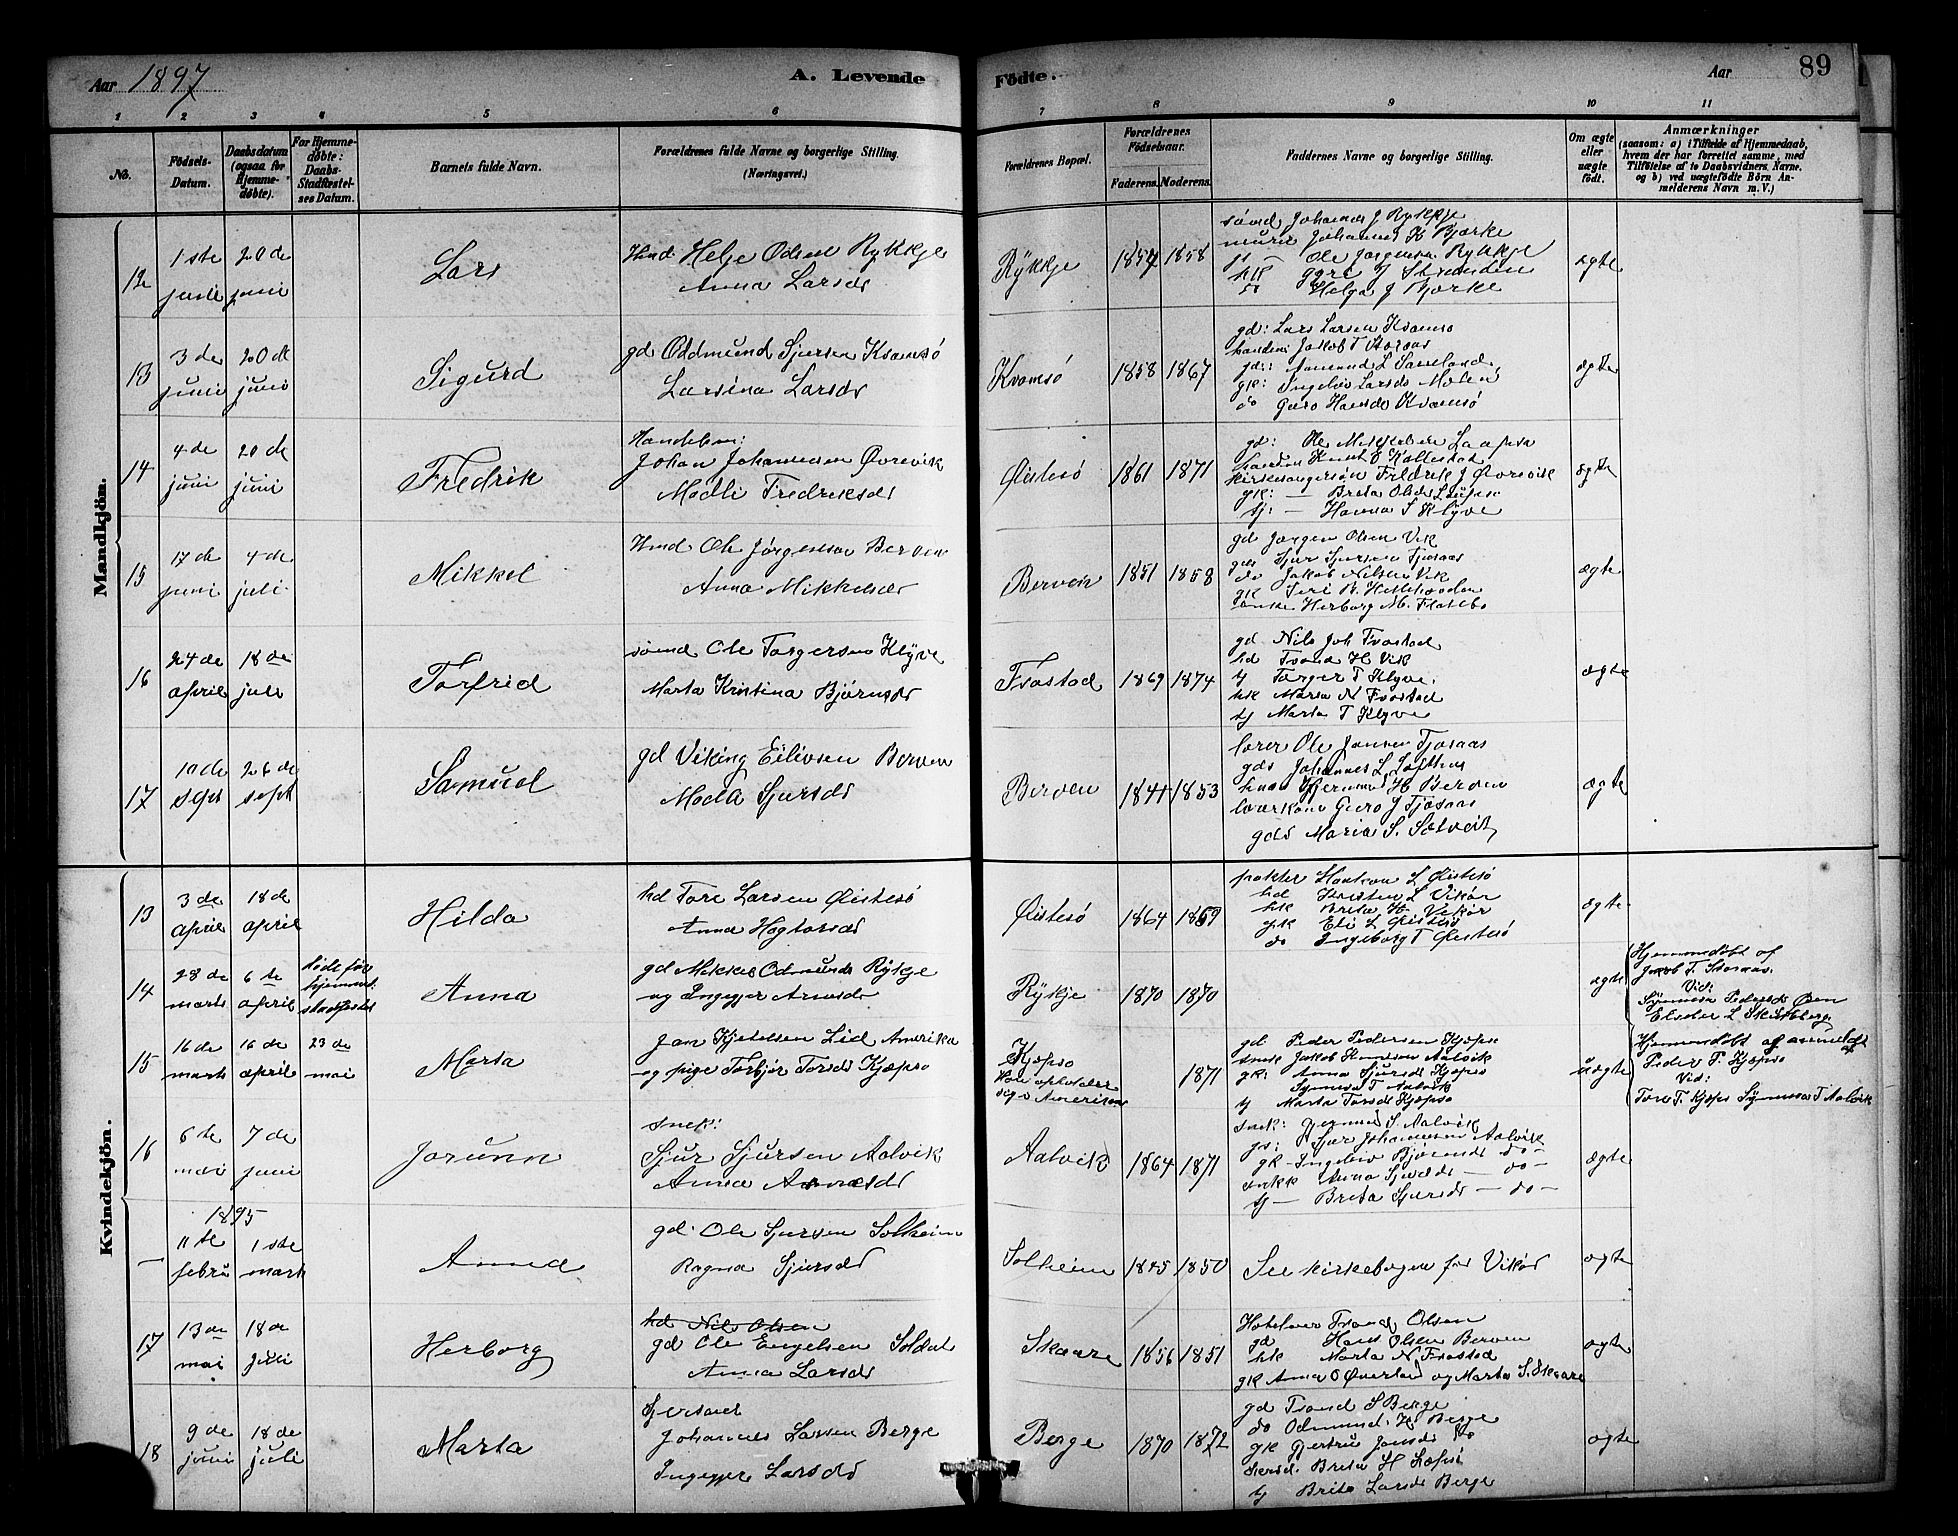 Aar 1897
A. Levende
Fødte.
Aar
89
1 2 3 4 5 6 7 8 9 10 11
No.
Fødsels-Datum.
Daabsdatum (ogsaa for Hjemmedøbte).
For Hjemmedøbte: Daabs-Stadfæstelses Datum.
Barnets fulde Navn.
Forældrenes fulde Navne og borgerlige Stilling. (Næringsvei.)
Forældrenes Bopæl.
Forældrenes Fødselsaar.
Faderens. Moderens.
Faddernes Navne og borgerlige Stilling.
Om ægte eller uægte født.
Anmærkninger
(saasom: a) i Tilfælde af Hjemmedaab, hvem der har forrettet samme, med Tilføielse af to Daabsvidners Navne, og b) ved uægtefødte Børn Anmelderens Navn m. V.)
Mandkjön.
12
1ste juni
20de juni
Lars
Helje Odsen Rykkje
Anna Larsdr
Rykkje
1857 1858
Johannes J Rykkje
murer Johannes H Bjørke
Ole Jørgensen Rykkje
J Stranden
do Helga J Bjørke
ægte
13
3de juni
20de juni
Sigurd
gd Oddmund Sjursen Kvamsø
Larsina Larsdr
Kvamsø
1858 1867
gd: Lars Larsen Kvamsø
Jakob T
gd: Aamund L
gk: Ingeleiv Larsdr Molen
do Guro Hansdr Kvamsø
ægte
14
4de juni
20de juni
Fredrik
Handelsm:
Johan Johannesen Øvrevik
Madli Fredriksdr
Østesø
1861 1871
gd: Ole
Knut E Kollestad
kirkesanger Fredrik J Øvrevik
gk: — Brita Olsdr
tj: — Hanna S Klyve
ægte
15
17de juni
4de juli
Mikkel
Hmd Ole Jørgensen Berven
Anna Mikkelsdr
Berven
1851 1858
gd Jørgen Olsen Vik
gds Sjur Sjursen Fjosaas
do Jakob Nilsen Vik
gk
enke Herborg M.
ægte
16
24de april
18de juli
Torfrid
Ole Torgersen Klyve
Marta Kristina Bjørnsdr
Frostad
1869 1874
gd Nils Joh Frostad
hd Trond H Vik
tj Torger T Klyve
hk Maria N Frostad
tj Marta T Klyve
ægte
17
10de sept
26de sept
Samuel
gd Viking Eilivsen Berven
Madla Sjursdr
Berven
1841 1853
lærer Ole Jansen Fjosaas
gds Johannes L
H Berven
Guro J Fjosaas
gds Maria S.
ægte
Kvindekjön.
13
3de april
18de april
Hilda
hd Tore Larsen Østesø
Anna Hogtorsdr
Østesø
1864 1869
Haakon L Østesø
hd Torsten L Vikør
hk Brita H. Vikør
gk Eli L Østesø
do Ingeborg T Østesø
ægte
14
28de marts
6te april
døde før hjemmed. stadfestet
Anna
gd Mikkel Odmunds Rykje
og Ingegjer Arnesdr
Rykje
1870 1870
ægte
Hjemmedøbt af
Jakob T.
Vid:
Synneva Pedersdr Øien
Elseber L
15
16de marts
16de april
23de mai
Marta
Jan Kjetelsen Lid Amerika
og pige Torbjør Torsdr Kjøpso
Kjøpso
Amerika
1871
gd Peder Pedersen Kjøpso
snek Jakob Aalvik
gk: Anna Sjursdr Kjøpso
Synneva T Aalvik
tj Marta Torsdr Kjøpso
uægte
Hjemmedøbt af anmeldt af
Peder P. Kjøpso
Vid:
Tore T. Kjøps Synneva T Aalvik
16
6te mai
7de juni
Jorunn
snek:
Sjur Sjursen Aalvik
Anna Arnesdr
Aalvik
1864 1871
snek: S. Aalvik
gd: Sjur Johannesen Aalvik
gk - Ingeleiv Bjørnsdr - do -
Anna — do -
tj — Brita Sjursdr — do -
ægte
1895
—
11te febru
1ste mart
Anna
gd: Ole Sjursen Solheim
Ragna Sjursdr
Solheim
1845 1850
See kirkebogen for Vikør
ægte
17
13de mai
18de juli
Herborg
hd Nils Olsen
gd Ole Engelsen
Anna Larsdr
Skaare
1856 1851
Trond Olsen
gd Hans Olsen Berven
hk Marta N Frostad
gk Anna O og Marta S. Skaare
ægte
18
9de juni
18de juli
Marta
Johannes Larsen Berge
Ingegjer Larsdr
Berge
1870 1872
gd Trond S Berge
do Odmund H. Berge
gk Gjertru Jonsdr do
Brita H
tj Brita Larsdr Berge
ægte